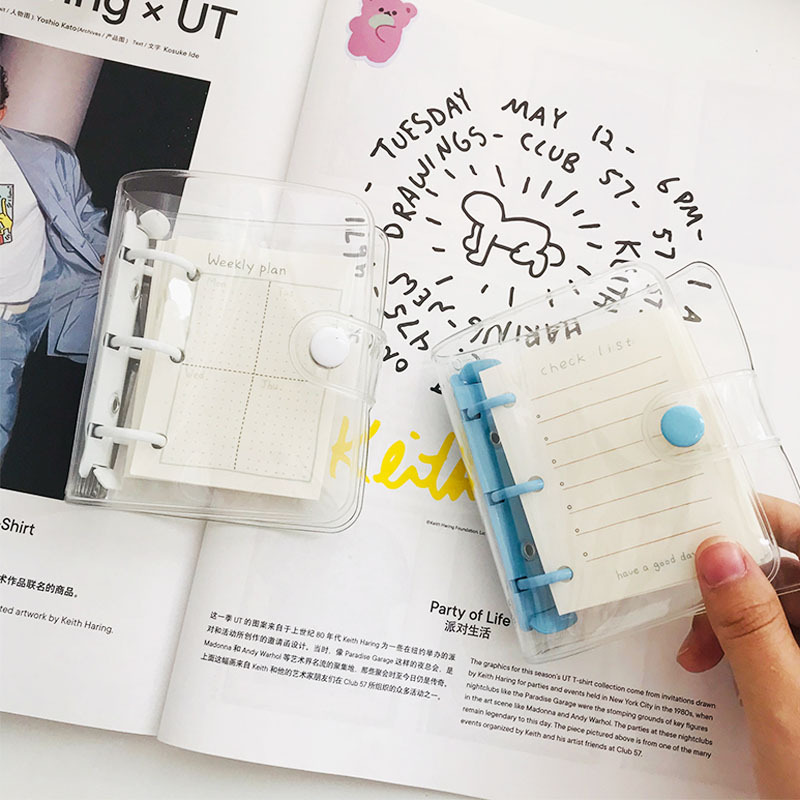 ring × UT
Text / 文字 Kosuke Ide
Yoshio Kato(Archives / 产品图)
-Shirt
术作品联名的商品。
ted artwork by Keith Haring.
TUESDAY MAY 12 - 6PM-
DRAWINGS - CLUB 57 - 57
KEITH HARING
NEW
Weekly plan
Mon
Tue
Wed.
Thu.
check list
have a good day
Keith
这一季 UT 的图案来自于上世纪 80 年代 Keith Haring 为一些在纽约举办的派
对和活动所创作的邀请函设计。当时，像 Paradise Garage 这样的夜总会，是
Madonna 和 Andy Warhol 等艺术界名流的聚集地，那些聚会时至今日仍是传奇。
上面这幅画来自 Keith 和他的艺术家朋友们在 Club 57 所组织的众多活动之一。
Party of Life
派对生活
The graphics for this season's UT T-shirt collection come from invitations drawn
by Keith Haring for parties and events held in New York City in the 1980s, when
nightclubs like the Paradise Garage were the stomping grounds of key figures
in the art scene like Madonna and Andy Warhol. The parties at these nightclubs
remain legendary to this day. The piece pictured above is from one of the many
events organized by Keith and his artist friends at Club 57.